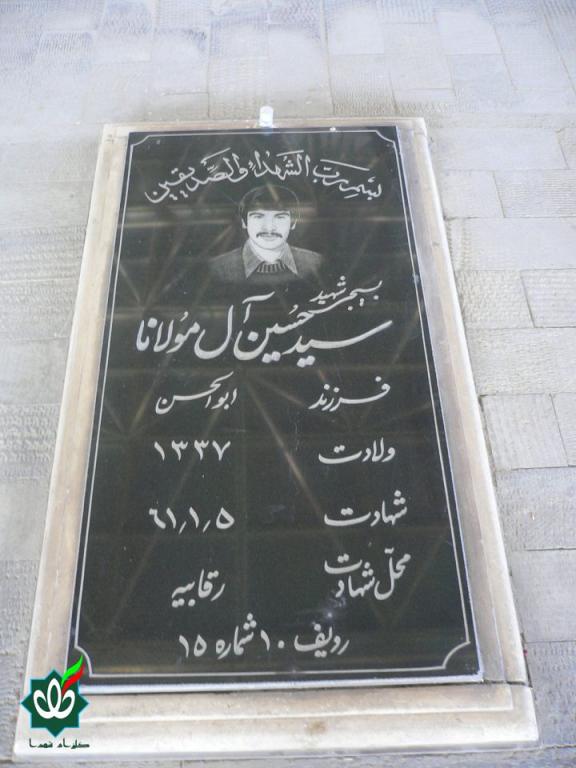 بسم رب الشهداء والصدیقین
بسیجی شهید
سید حسین آل مولانا
فرزند ابوالحسن
ولادت ۱۳۳۷
شهادت ۶۱٫۱٫۵
محل شهادت رقابیه
ردیف ۱۰ شماره ۱۵
گلزار شهدا